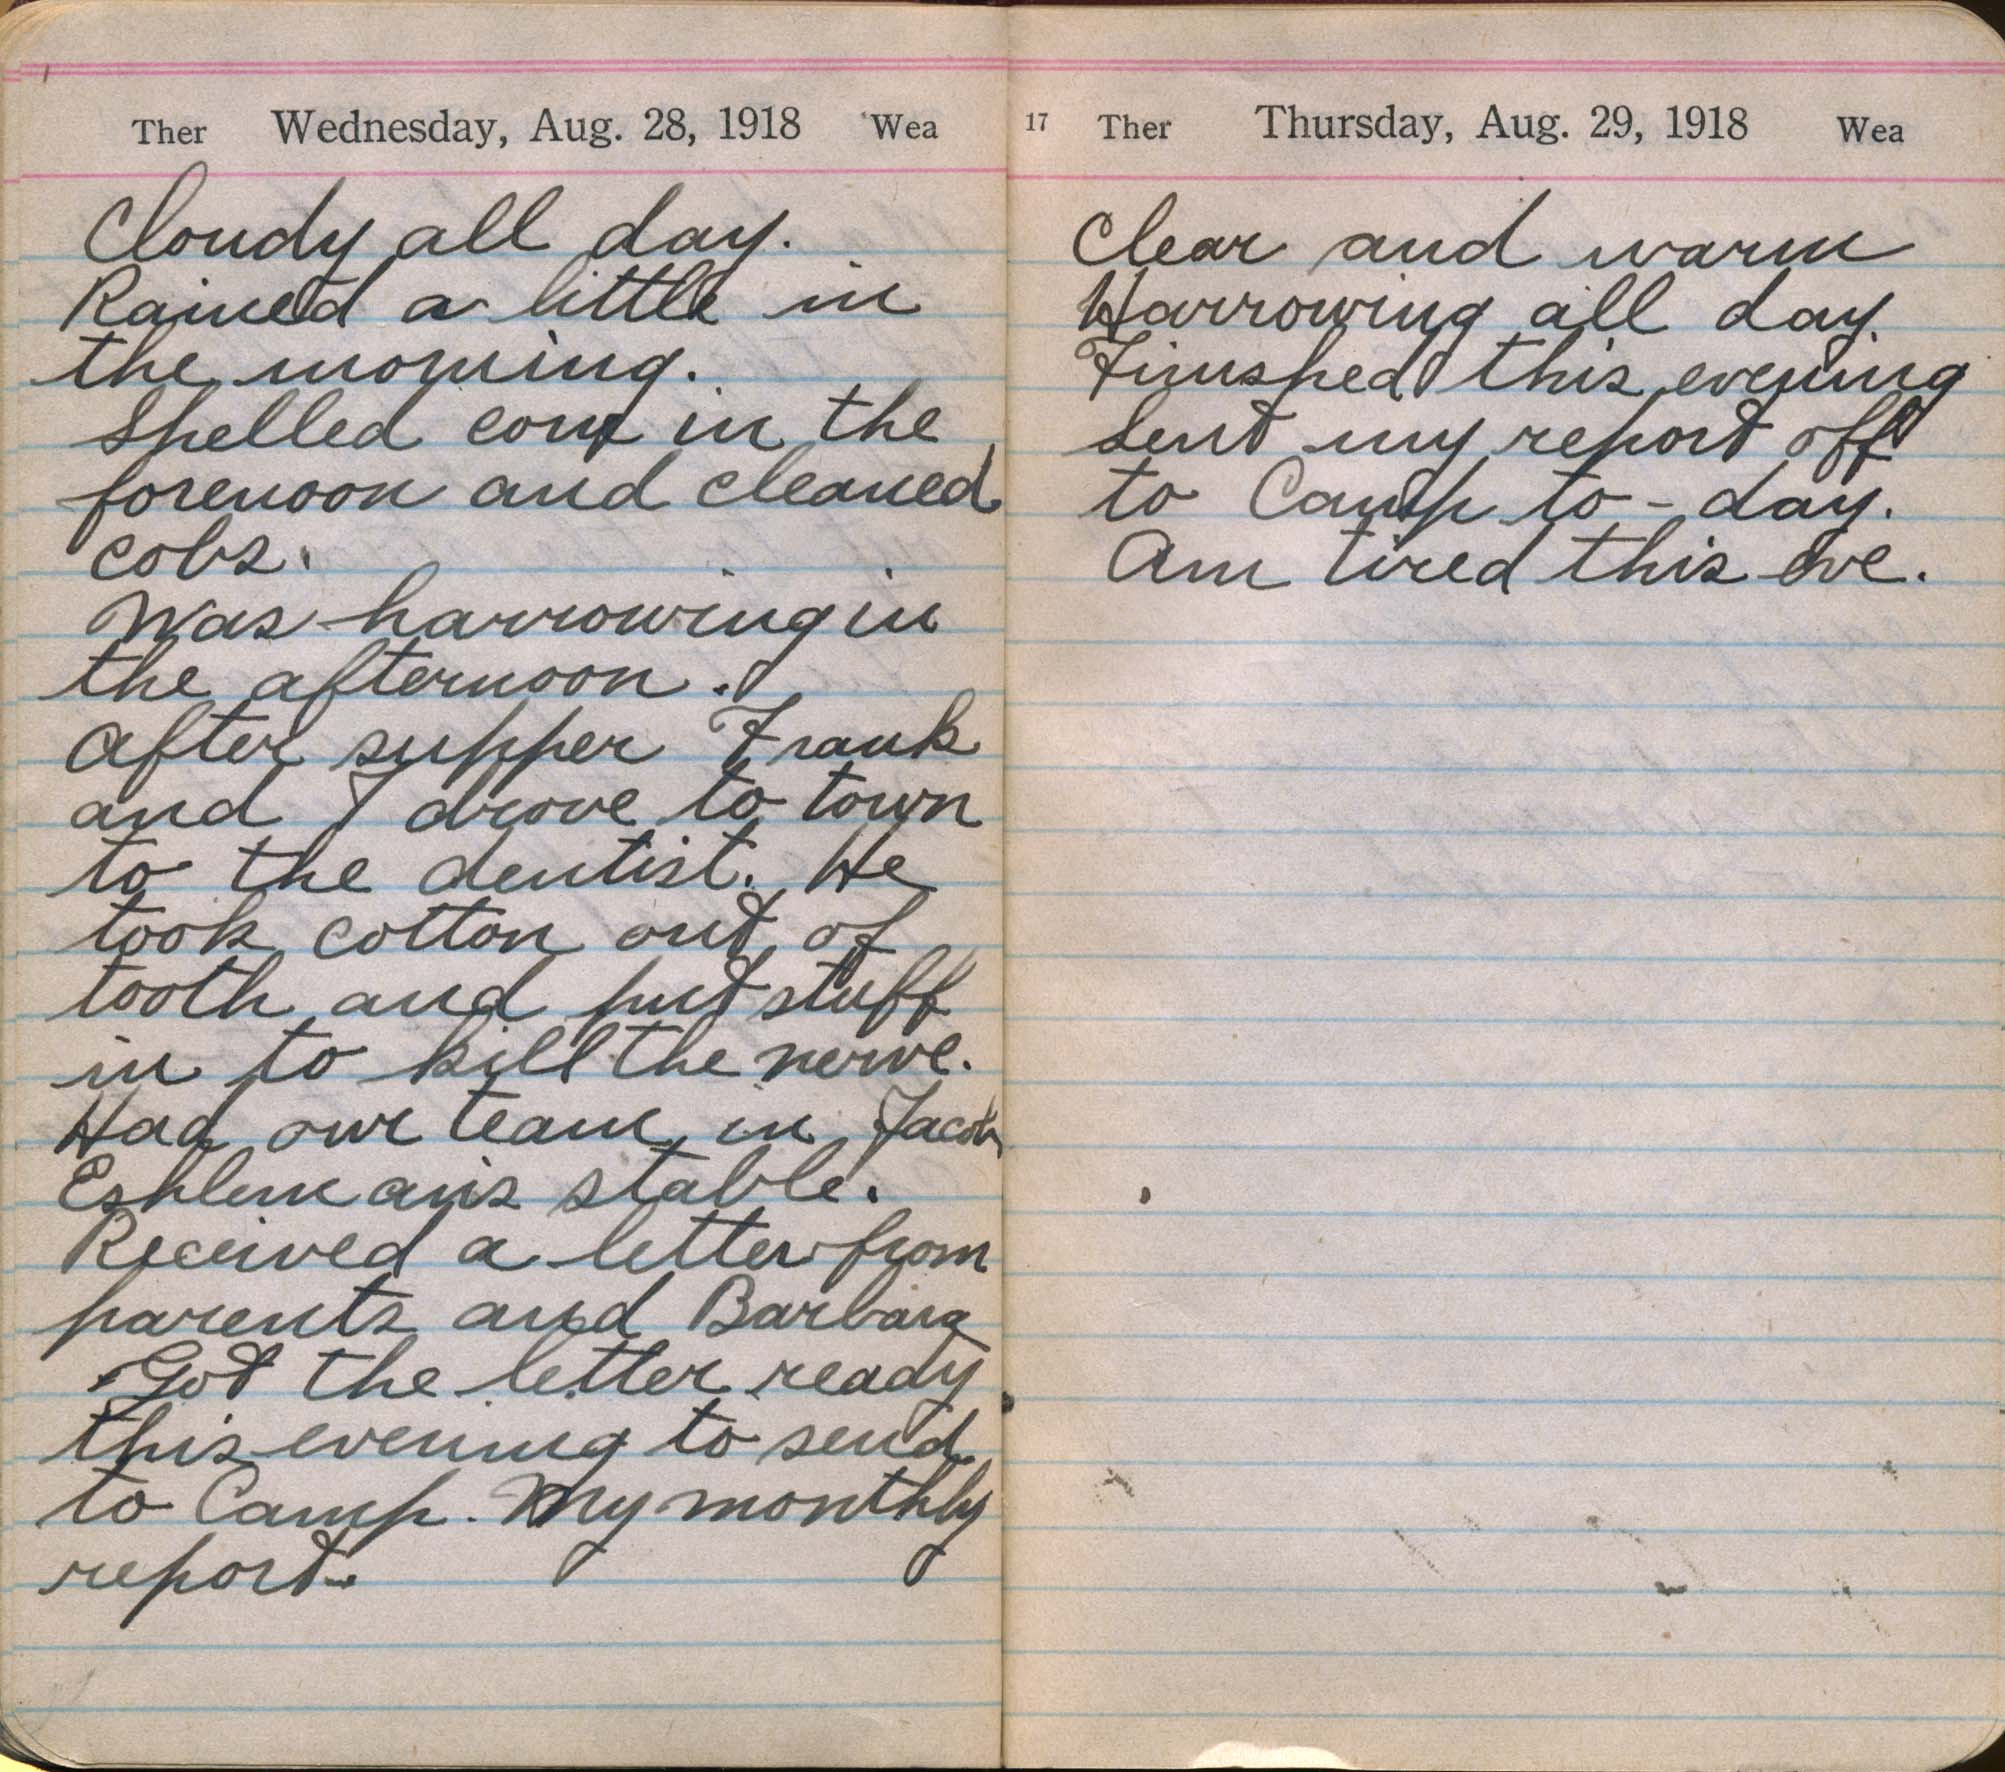 Ther Wednesday, Aug. 28, 1918 Wea
Cloudy all day.
Rained a little in
the morning.
Shelled corn in the
forenoon and cleaned
cobs.
Was harrowing in
the afternoon.
After supper Frank
and I drove to town
to the dentist. He
took cotton out of
tooth and put stuff
in to kill the nerve.
Had our team in Jacob
Eshleman's stable.
Received a letter from
parents and Barbara
Got the letter ready
this evening to send
to Camp. My monthly
report.
17 Ther Thursday, Aug. 29, 1918 Wea
Clear and warm
Harrowing all day.
Finished this evening
Sent my report off
to Camp to-day.
Am tired this eve.